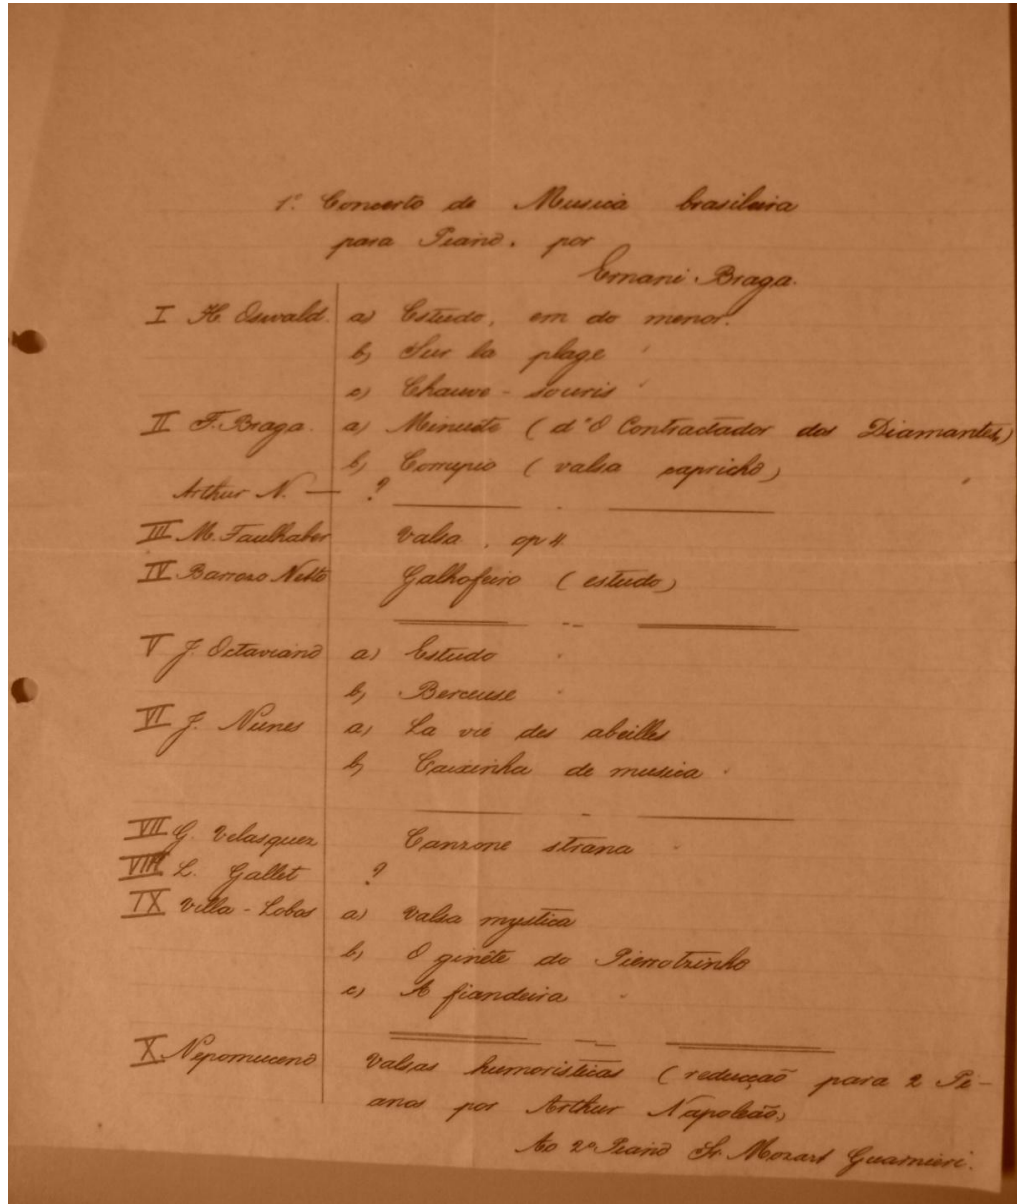 1º. Concerto de Musica brasileira
para Piano. por
Ernani Braga.
I H. Oswald. a) Estudo, em do menor.
b) Sur la plage
c) Chauve-souris
II F. Braga. a) Minueto (d'O Contractador dos Diamantes)
b) Corrupio (valsa capricho)
Arthur N. — ?
III M. Faulhaber Valsa, op 4
IV Barrozo Netto Galhofeiro (estudo)
V J. Octaviano a) Estudo
b) Berceuse
VI J. Nunes a) La vie des abeilles
b) Caixinha de musica
VII G. Velasquez Canzone strana
VIII L. Gallet ?
IX Villa-Lobos a) Valsa mystica
b) O ginête do Pierrotzinho
c) A fiandeira
X Nepomuceno Valsas humoristicas (reducção para 2 Pi-
anos por Arthur Napoleão)
Ao 2º Piano Sr. Mozart Guarnieri.